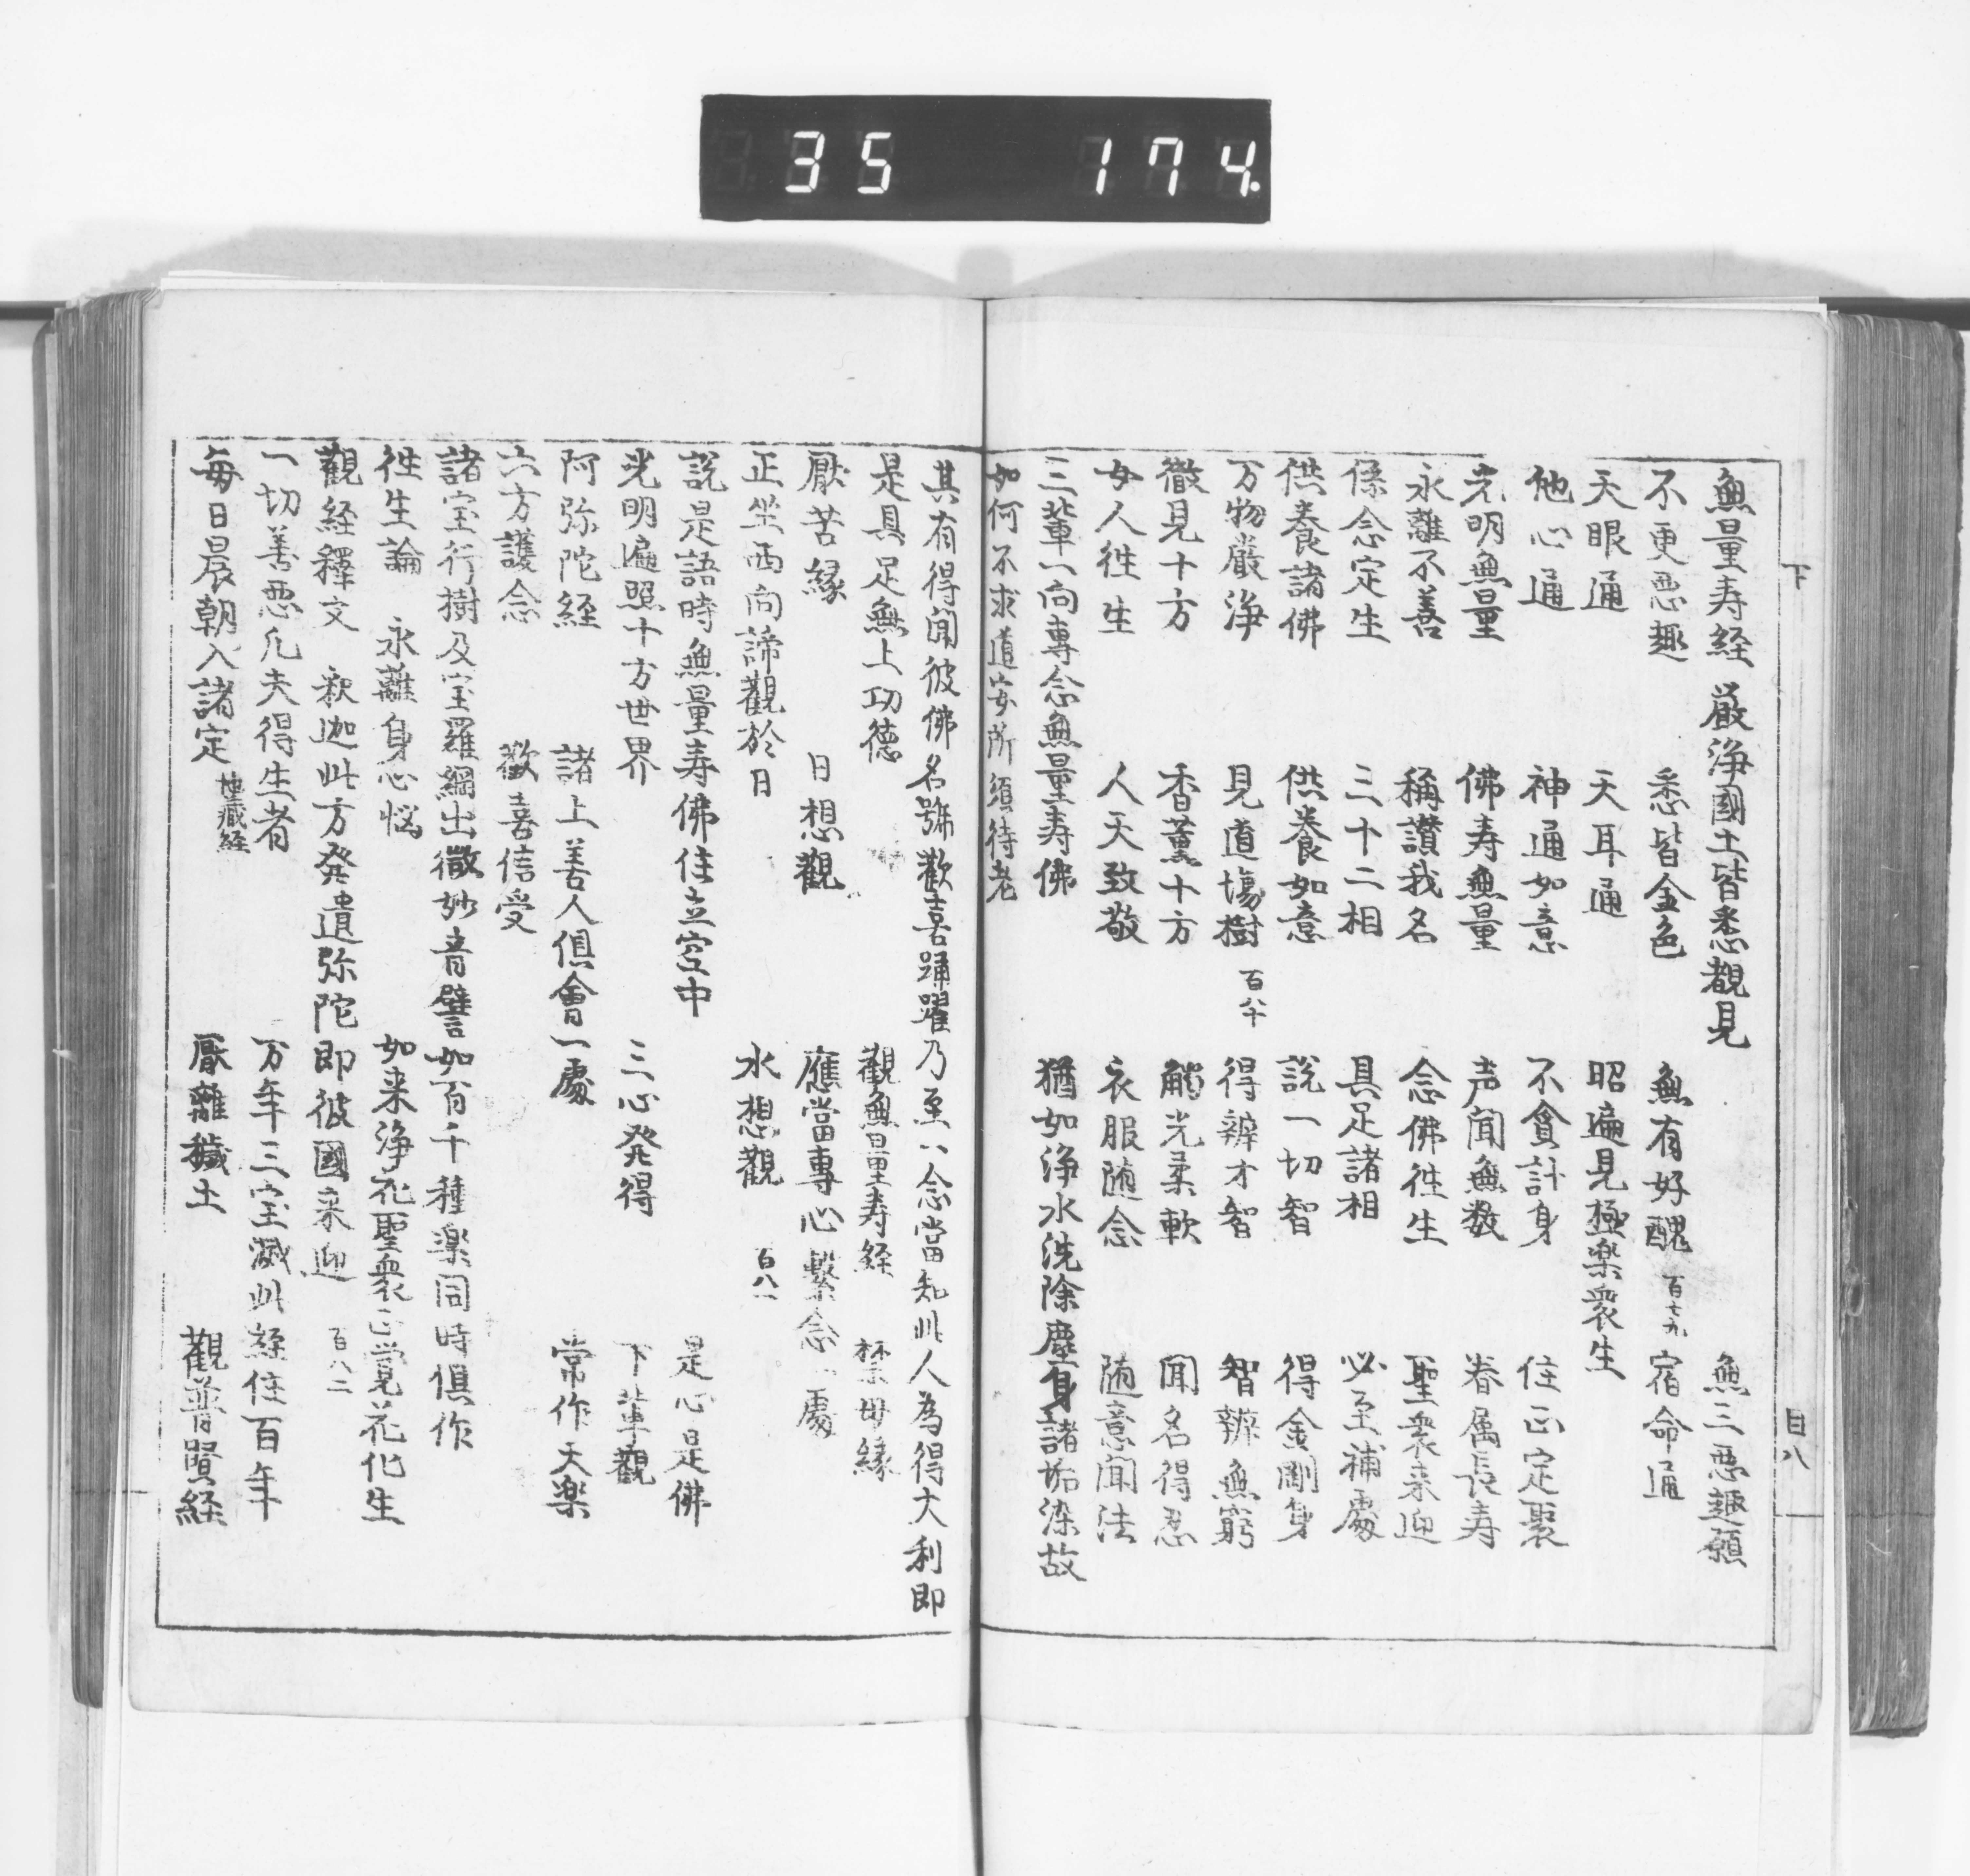 35 174
下
目八
無量寿経 厳浄國土皆悉覩見 無三悪趣願
不更悪趣 悉皆金色 無有好醜 百七九 宿命通
天眼通 天耳通 昭遍見極楽衆生
他心通 神通如意 不貪計身 住正定聚
光明無量 佛寿無量 声聞無数 眷属長寿
永離不善 稱讃我名 念佛往生 聖衆来迎
係念定生 三十二相 具足諸相 必至補處
供養諸佛 供養如意 説一切智 得金剛身
万物嚴浄 見道場樹 百八十 得辨才智 智辨無窮
徹見十方 香薫十方 觸光柔軟 聞名得忍
女人往生 人天致敬 衣服随念 随意聞法
三輩一向專念無量寿佛 猶如浄水洗除塵身諸垢染故
如何不求道安所須待老
其有得聞彼佛名号歓喜踊躍乃至一念當知此人為得大利即
是具足無上功徳 觀無量寿経 禁母縁
厭苦縁 日想觀 應當專心繋念一處
正坐西向諦觀於日 水想觀 百八一
説是語時無量寿佛住立空中 是心是佛
光明遍照十方世界 三心発得 下輩觀
阿弥陀経 諸上善人倶會一處 常作天楽
六方護念 歓喜信受
諸宝行樹及宝羅網出微妙音譬如百千種楽同時倶作
往生論 永離身心悩 如来浄花聖衆正覚花化生
觀経釋文 釈迦此方発遣弥陀即彼國来迎 百八二
一切善悪凡夫得生者 万年三宝滅此経住百年
毎日晨朝入諸定 地蔵経 厭離穢土 觀普賢経